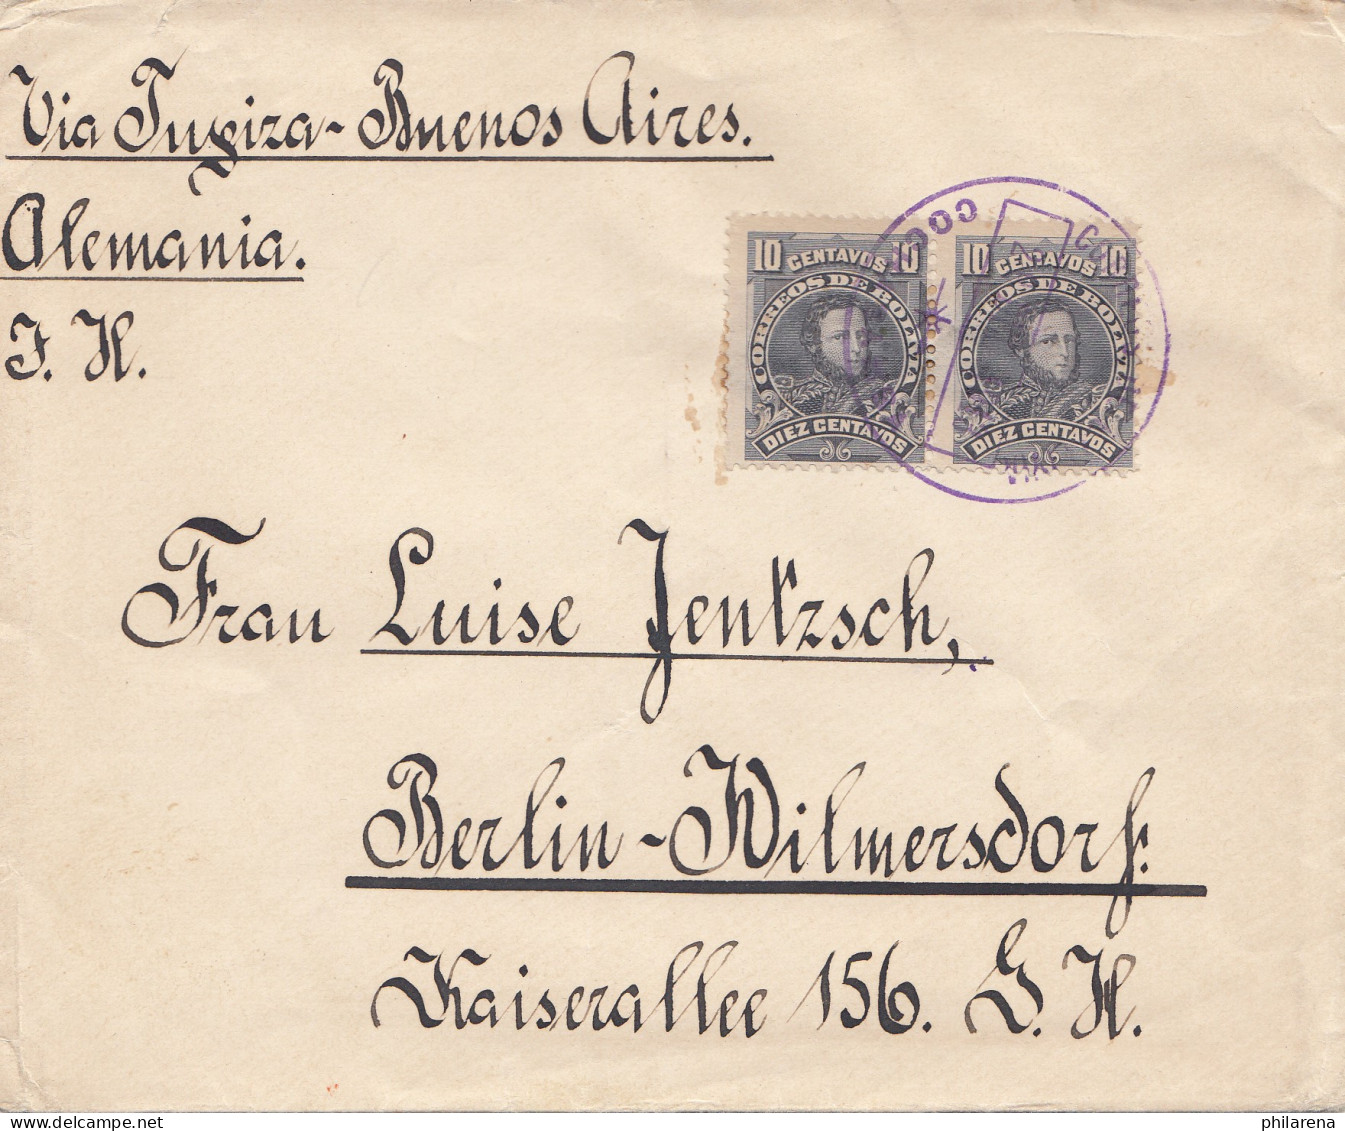 Via Tupiza - Buenos Aires.
Alemania.
J. H.
10 CENTAVOS 10
CORREOS DE BOLIVIA
DIEZ CENTAVOS
10 CENTAVOS 10
CORREOS DE BOLIVIA
DIEZ CENTAVOS
Frau Luise Jentzsch,
Berlin - Wilmersdorf.
Kaiserallee 156. G. H.
philarena